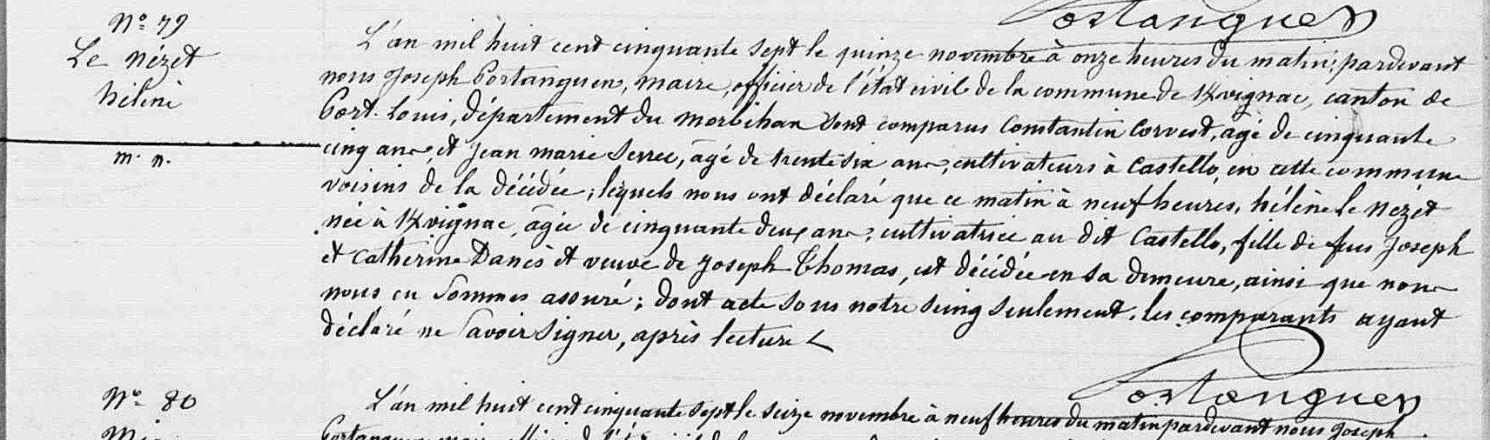 Portanguen
Nº 79
Le Nézet
hélène
m. n.
L'an mil huit cent cinquante sept le quinze novembre à onze heures du matin; pardevant
nous Joseph Portanguen, maire, officier de l'état civil de la commune de Kvignac, canton de
Port-Louis, département du Morbihan sont comparus Constantin Corvest, agé de cinquante
cinq ans, et Jean marie Serrec, agé de trente six ans, cultivateurs à Castello, en cette commune
voisins de la décédée; lequels nous ont déclaré que ce matin à neuf heures, hélène le Nezet
née à Kvignac, agée de cinquante deux ans, cultivatrice au dit Castello, fille de feus Joseph
et Catherine Danès et veuve de Joseph Thomas, est décédée en sa demeure, ainsi que nous
nous en sommes assuré; dont acte sous notre seing seulement. les comparants ayant
déclaré ne savoir signer, après lecture
Portanguen
Nº 80
L'an mil huit cent cinquante sept le seize novembre à neuf heures du matin pardevant nous Joseph
Portanguen, maire